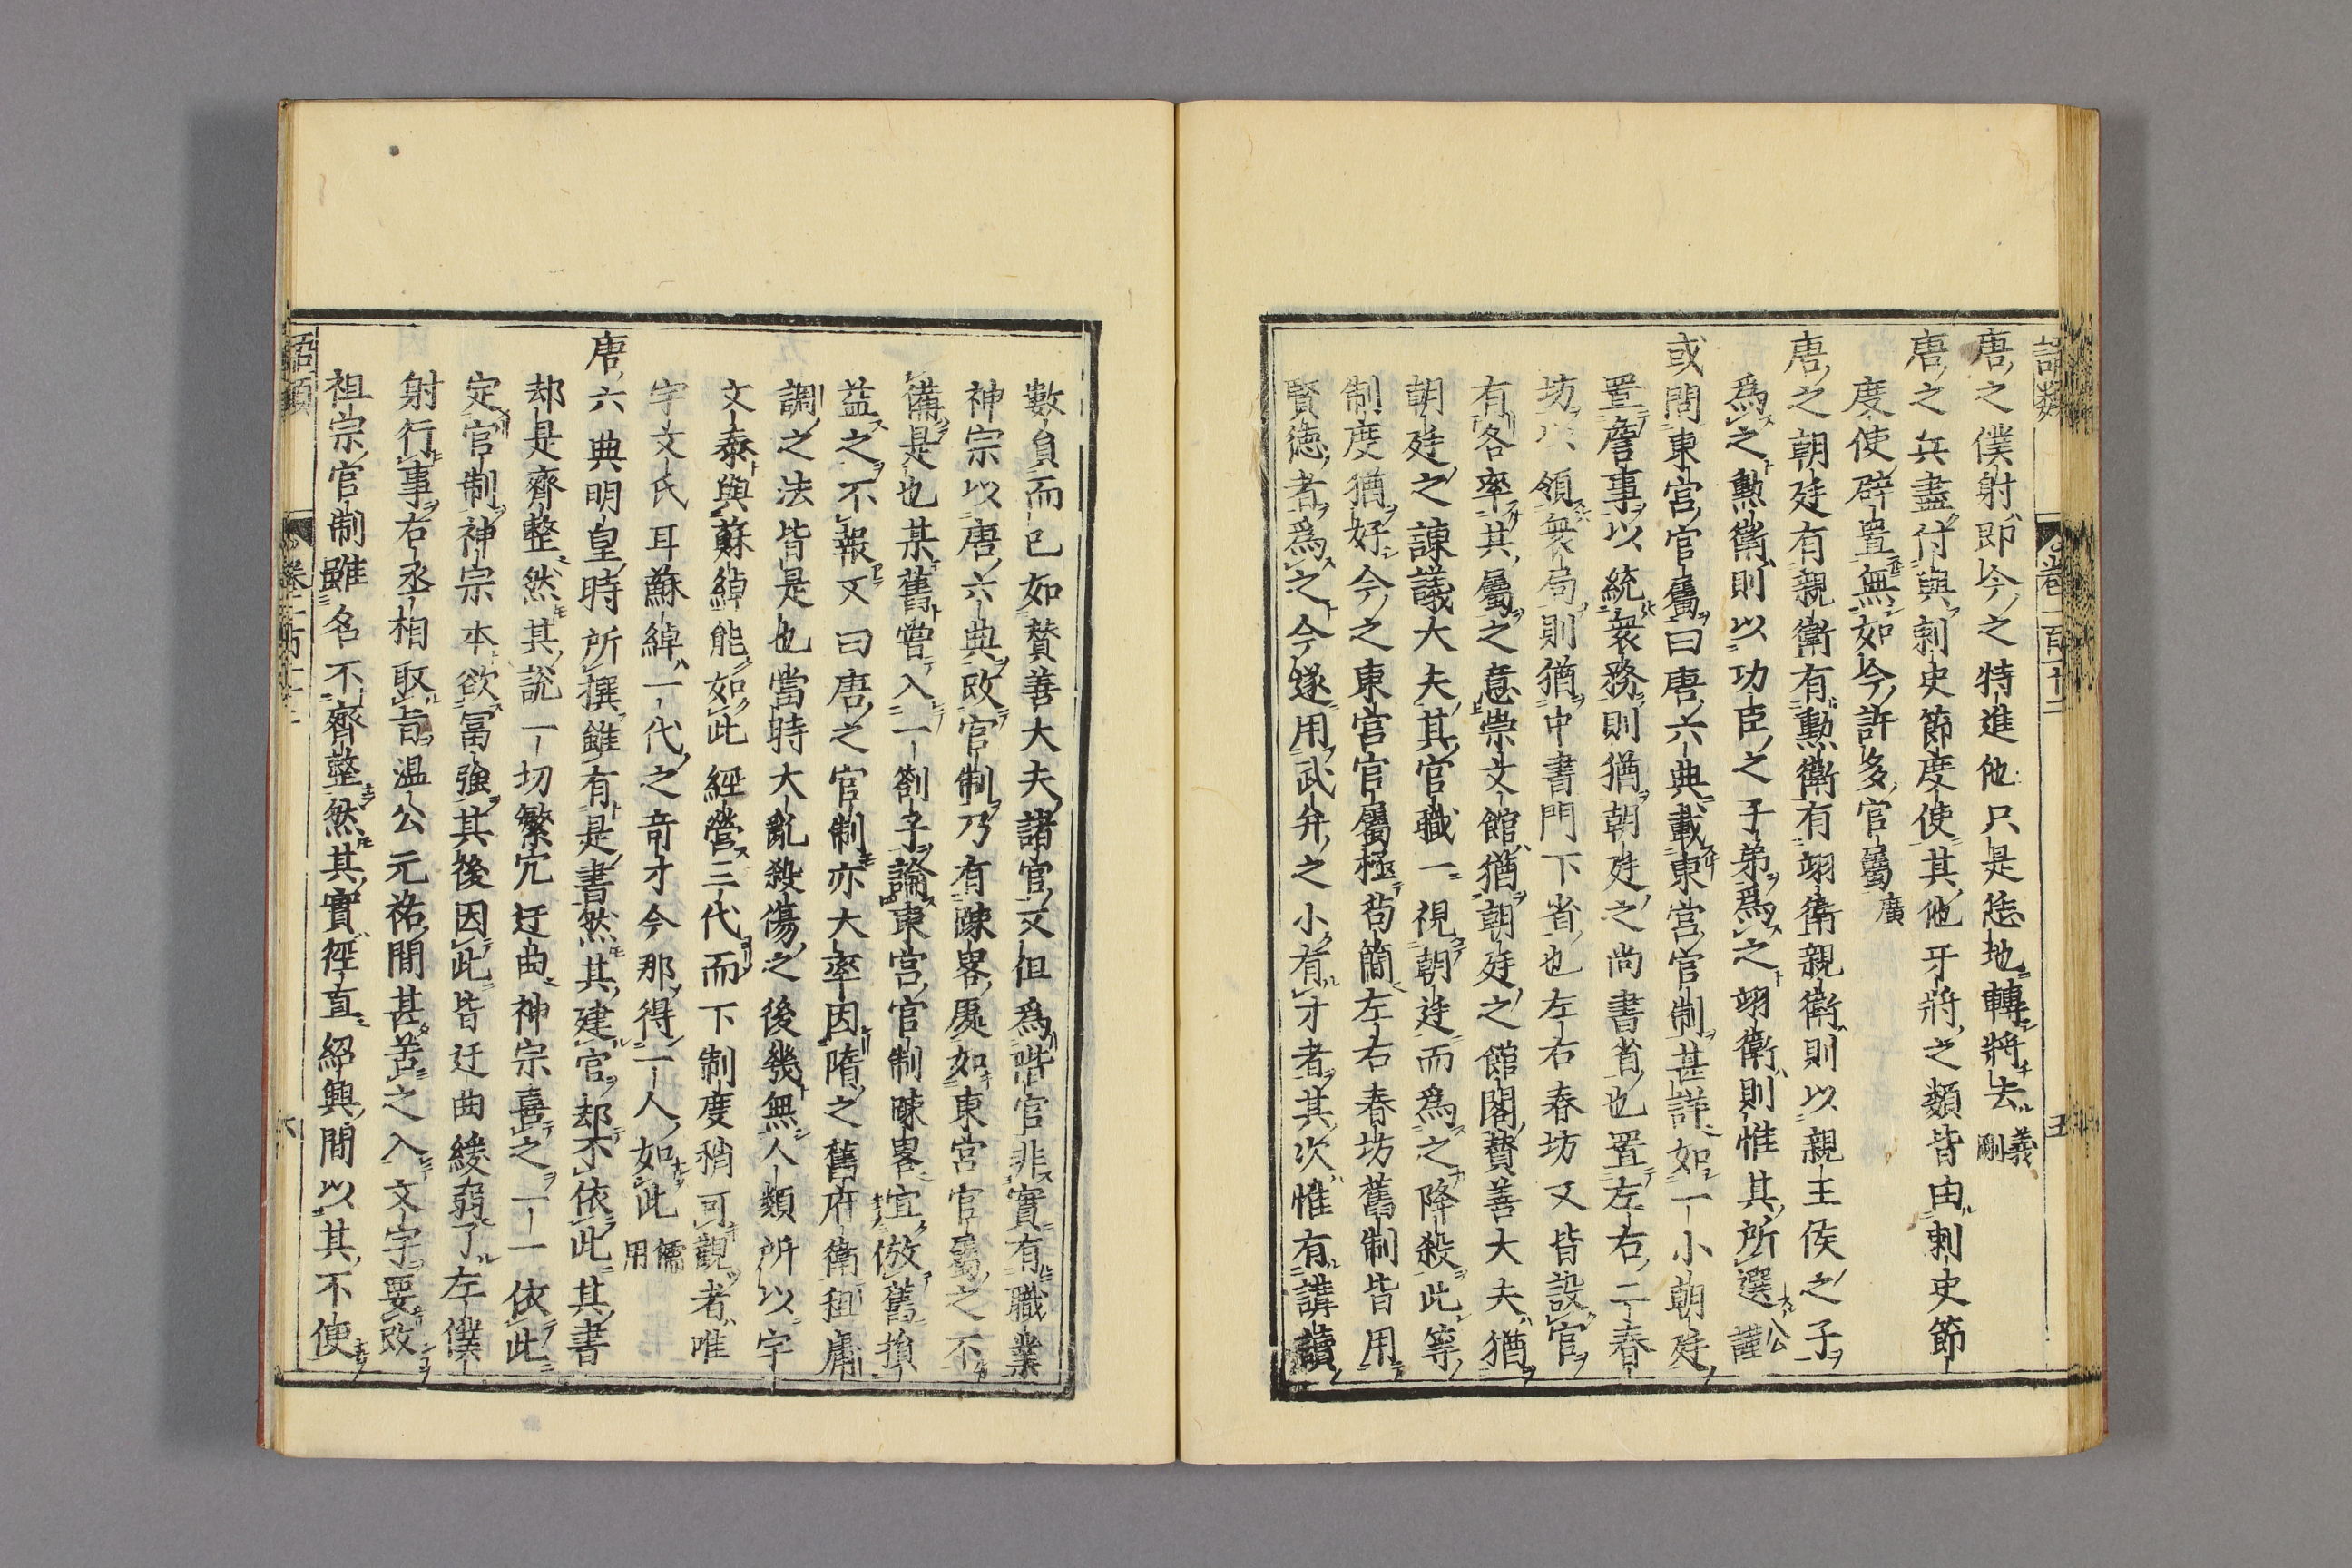 語類 卷一百十二 五
唐之僕射即今之特進他只是恁地轉將去義剛
唐之兵盡付與刺史節度使其他牙將之類皆由刺史節
度使辟置無如今許多官屬廣
唐之朝廷有親衛有勲衛有翊衛親衛則以親王侯之子
爲之勲衛則以功臣之子弟爲之翊衛則惟其所選公謹
或問東宮官屬曰唐六典載東宮官制甚詳如一小朝廷
置詹事以統衆務則猶朝廷之尚書省也置左右二春
坊以領衆局則猶中書門下省也左右春坊又皆設官
有各率其屬之意崇文館猶朝廷之館閣贊善大夫猶
朝廷之諫議大夫其官職一視朝廷而爲之降殺此等
制度猶好今之東宮官屬極苟簡左右春坊舊制皆用
賢德者爲之今遂用武弁之小有才者其次惟有講讀
數員而已如贊善大夫諸官又但爲階官非實有職業
神宗以唐六典改官制乃有疎畧處如東宮官屬之不
備是也某舊嘗入一劄子論東宮官制疎畧宜倣舊損
益之不報又曰唐之官制亦大率因隋之舊府衛租庸
調之法皆是也當時大亂殺傷之後幾無人類所以宇
文泰與蘇綽能如此經營三代而下制度稍可觀者唯
宇文氏耳蘇綽一代之奇才今那得一人如此儒用
唐六典明皇時所撰雖有是書然其建官却不依此其書
却是齊整然其說一切繁冗迂曲神宗喜之一一依此
定官制神宗本欲冨強其後因此皆迂曲綾弱了左僕
射行事右丞相取旨溫公元祐間甚苦之入文字要改
祖宗官制雖名不齊整然其實徑直紹興間以其不使
語類 卷一百十二 六